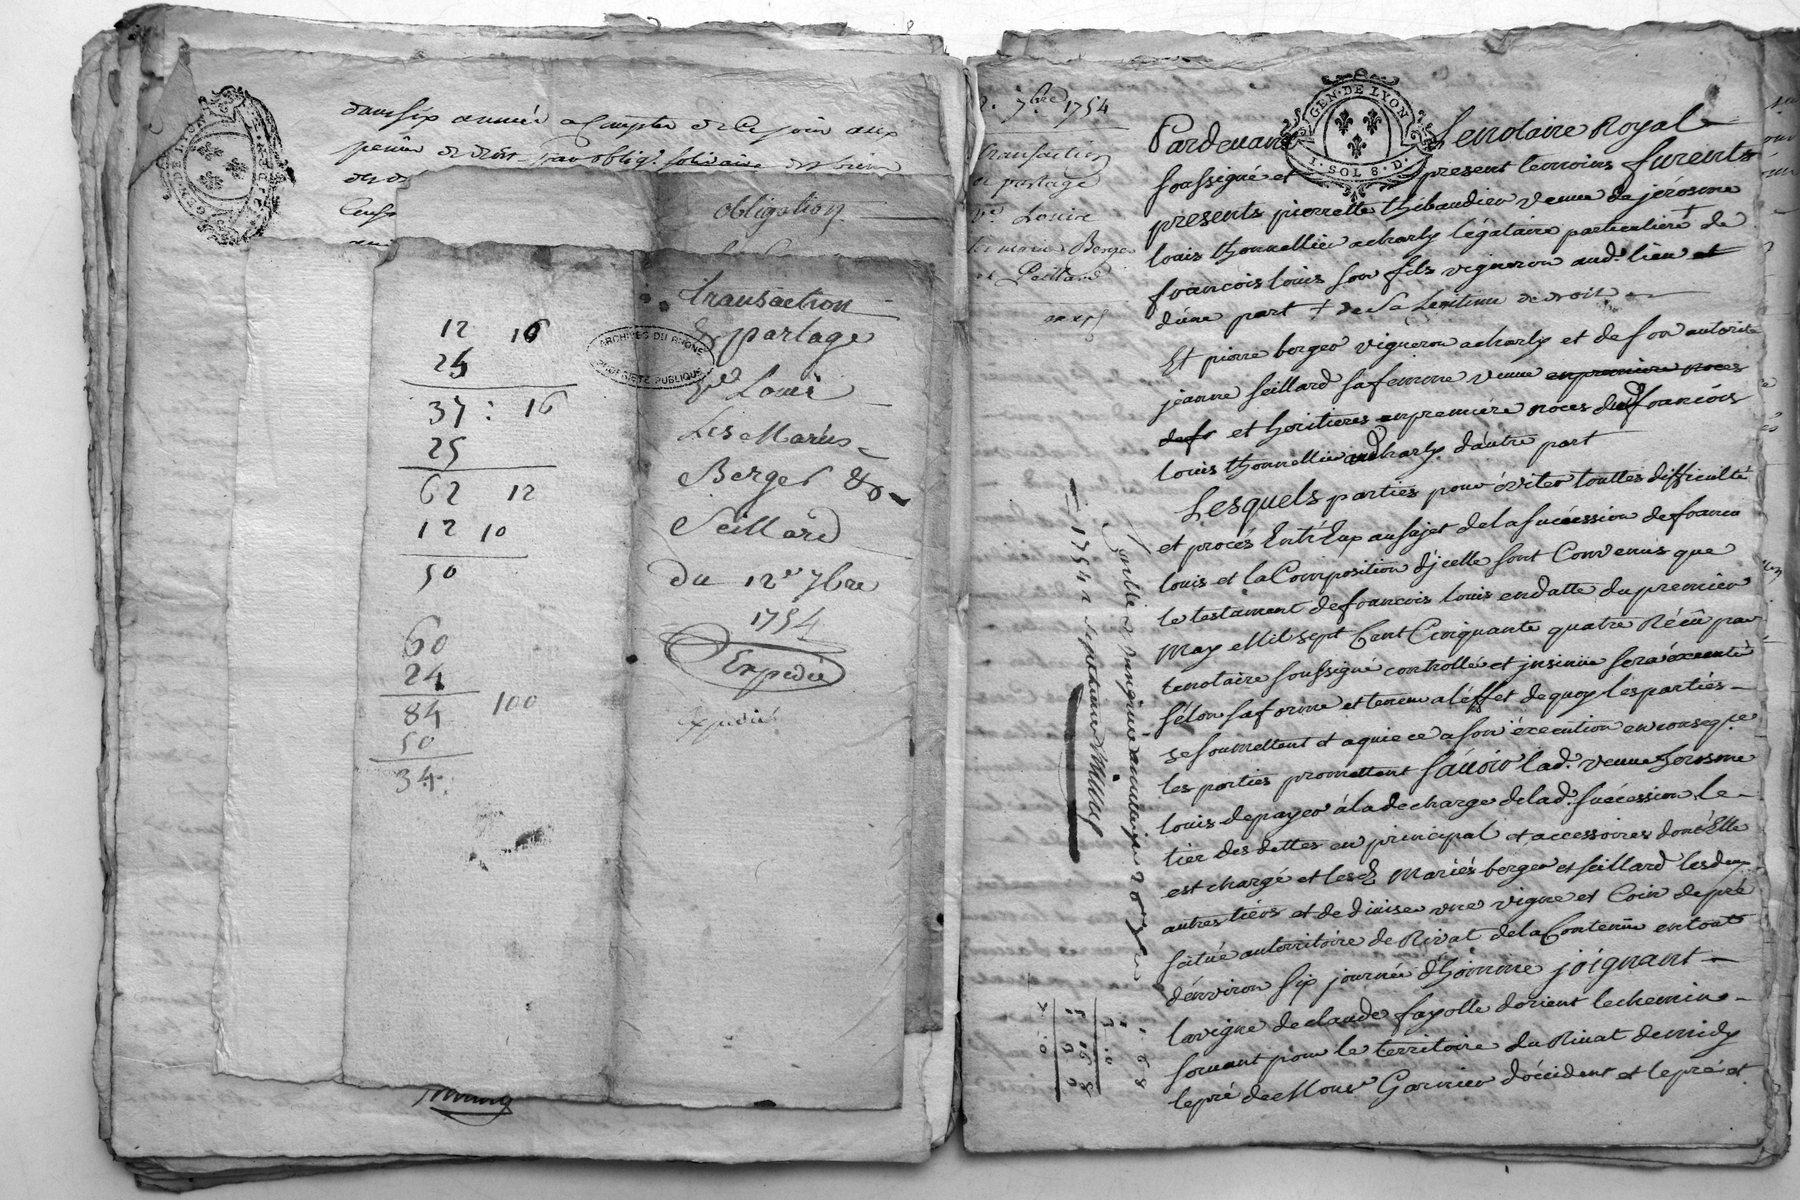 dans six année a Compter de Ce jour aux
peine de droit
obligation
transaction
& partage
ve. Louis
Les Mariés
Berger &
Seillard
Du 12e 7bre
1754
Expedié
Expedié
ARCHIVES DU RHONE
PROPRIETE PUBLIQUE
12 16
25
37 : 16
25
62 12
12 10
50
60
24
84 100
50
34
GEN. DE LYON
1. SOL 8. D.
7bre 1754
Transaction
& partage
ve. Louis
Berger
et Seillard
Pardevant Le notaire Royal
soussigné et present temoins furents
presents pierrette thibaudier veuve de jerosme
louis thonnellier a charly légataire particuliere de
francois louis son fils vigneron aud. lieu et
d'une part + de sa Legitime de droit
Et pierre berger vigneron a charly et de son autorité
jeanne seillard sa femme veuve en premiere noces
defr et heritieres en premiére noces dud. francois
louis thonnellier aud. charly d'autre part
Lesquels parties pour éviter touttes difficulté
et procés Entr'Eux au sujet de la succession de francois
louis et la Composition d'jcelle sont Convenus que
le testament de francois louis en datte du premier
May Mil sept Cent Cinquante quatre Récû par
le notaire soussigné controllé et jnsinué sera éxecuté
sélon sa forme et teneur a l'éffet de quoy les partiés
se soumettent et aquiece a son éxécution en conseqce
les parties promettent sçavoir lad. veuve Jerosme
louis de payer á la decharge de lad. succession le
tier des dettes en principal et accessoires dont Elle
est chargé et lesd. Mariés berger et seillard les deux
autres tiers et de diviser une vigne et Coin de pré
situé au territoire de Rivat de la Contenüe en tout
d'énviron six journée d'homme joignant
la vigne de claude fayolle d'orient le chemin
servant pour le territoire du Rivat de midy
le pré de Monsr Garnier d'óccident et le pré et
1754